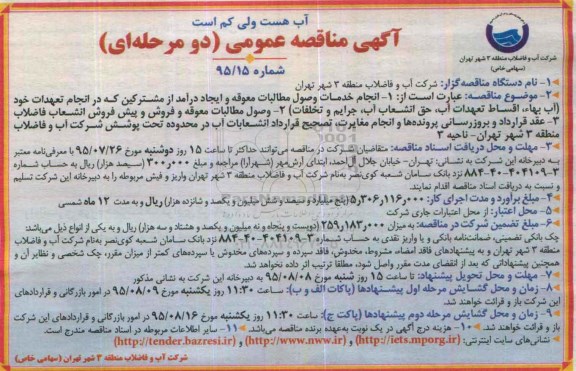 آب هست ولی کم است
آگهی مناقصه عمومی (دو مرحله‌ای)
شماره ۹۵/۱۵
شرکت آب و فاضلاب منطقه ۳ شهر تهران
(سهامی خاص)
۱- نام دستگاه مناقصه‌گزار: شرکت آب و فاضلاب منطقه ۳ شهر تهران
۲- موضوع مناقصه: عبارت است از: ۱- انجام خدمات وصول مطالبات معوقه و ایجاد درآمد از مشترکین که در انجام تعهدات خود
(آب بهاء، اقساط تعهدات آب، حق انشعاب آب، جرایم و تخلفات) ۲- وصول مطالبات معوقه و فروش و پیش فروش انشعاب فاضلاب
۳- عقد قرارداد و بروزرسانی پرونده‌ها و انجام مغایرت، تصحیح قرارداد انشعابات آب در محدوده تحت پوشش شرکت آب و فاضلاب
منطقه ۳ شهر تهران- ناحیه ۳
۳- مهلت و محل دریافت اسناد مناقصه: متقاضیان شرکت در مناقصه می‌توانند حداکثر تا ساعت ۱۵ روز دوشنبه مورخ ۹۵/۰۷/۲۶ با معرفی‌نامه معتبر
به دبیرخانه این شرکت به نشانی: تهران- خیابان جلال آل‌احمد، ابتدای آرش‌مهر (شهرآرا) مراجعه و مبلغ ۳۰۰٫۰۰۰ (سیصد هزار) ریال به حساب شماره
۸۸۴-۴۰-۴۰۴۱۰۹-۳ نزد بانک سامان شعبه کوی‌نصر به‌نام شرکت آب و فاضلاب منطقه ۳ شهر تهران واریز و فیش مربوطه را به دبیرخانه این شرکت تسلیم
و نسبت به دریافت اسناد مناقصه اقدام نمایند.
۴- مبلغ برآورد و مدت اجرای کار: ۵٫۳۰۶٫۱۱۶٫۰۰۰ (پنج میلیارد و سیصد و شش میلیون و یکصد و شانزده هزار) ریال و به مدت ۱۲ ماه شمسی
۵- محل اعتبار: از محل اعتبارات جاری شرکت
۶- مبلغ تضمین شرکت در مناقصه: به میزان ۲۵۹٫۱۸۳٫۰۰۰ (دویست و پنجاه و نه میلیون و یکصد و هشتاد و سه هزار) ریال و به یکی از انواع ذیل می‌باشد:
چک بانکی تضمینی، ضمانت‌نامه بانکی و یا واریز نقدی به حساب شماره ۸۸۴-۴۰-۴۰۴۱۰۹-۳ نزد بانک سامان شعبه کوی‌نصر به‌نام شرکت آب و فاضلاب
منطقه ۳ شهر تهران و به پیشنهادهای فاقد امضاء، مشروط، مخدوش، فاقد سپرده و سپرده‌های مخدوش یا سپرده‌های کمتر از میزان مقرر، چک شخصی و نظایر آن و
همچنین پیشنهاداتی که بعد از انقضای مدت مقرر واصل شود، مطلقا ترتیب اثر داده نخواهد شد.
۷- مهلت و محل تحویل پیشنهاد: تا ساعت ۱۵ روز شنبه مورخ ۹۵/۰۸/۰۸ به دبیرخانه این شرکت به نشانی مذکور
۸- زمان و محل گشایش مرحله اول پیشنهادها (پاکات الف و ب): ساعت ۱۱:۳۰ روز یکشنبه مورخ ۹۵/۰۸/۰۹ در امور بازرگانی و قراردادهای
این شرکت باز و قرائت خواهند شد.
۹- زمان و محل گشایش مرحله دوم پیشنهادها (پاکت ج): ساعت ۱۱:۳۰ روز یکشنبه مورخ ۹۵/۰۸/۱۶ در امور بازرگانی و قراردادهای این شرکت
باز و قرائت خواهند شد. ۱۰- هزینه درج آگهی در یک نوبت به‌عهده برنده مناقصه می‌باشد. ۱۱- سایر اطلاعات مربوطه در اسناد مناقصه مندرج است.
نشانی‌های سایت اینترنتی: (http://iets.mporg.ir) و (http://www.nww.ir) و (http://tender.bazresi.ir)
شرکت آب و فاضلاب منطقه ۳ شهر تهران (سهامی خاص)